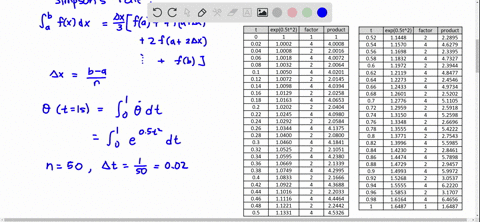 Simpson's rule
∫ₐᵇ f(x) dx = Δx/3 [ f(a) +
+ 2f(a+2Δx)
⋮ + f(b) ]
Δx = (b-a)/n
θ (t=1s) = ∫₀¹ θ̇ dt
= ∫₀¹ e^(0.5t²) dt
n = 50 , Δt = 1/50 = 0.02
t exp(0.5t^2) factor product
0 1 1 1
0.02 1.0002 4 4.0008
0.04 1.0008 2 2.0016
0.06 1.0018 4 4.0072
0.08 1.0032 2 2.0064
0.1 1.0050 4 4.0201
0.12 1.0072 2 2.0145
0.14 1.0098 4 4.0394
0.16 1.0129 2 2.0258
0.18 1.0163 4 4.0653
0.2 1.0202 2 2.0404
0.22 1.0245 4 4.0980
0.24 1.0292 2 2.0584
0.26 1.0344 4 4.1375
0.28 1.0400 2 2.0800
0.3 1.0460 4 4.1841
0.32 1.0525 2 2.1051
0.34 1.0595 4 4.2380
0.36 1.0669 2 2.1339
0.38 1.0749 4 4.2995
0.4 1.0833 2 2.1666
0.42 1.0922 4 4.3688
0.44 1.1016 2 2.2033
0.46 1.1116 4 4.4464
0.48 1.1221 2 2.2442
0.5 1.1331 4 4.5326
0.52 1.1448 2 2.2895
0.54 1.1570 4 4.6279
0.56 1.1698 2 2.3395
0.58 1.1832 4 4.7327
0.6 1.1972 2 2.3944
0.62 1.2119 4 4.8477
0.64 1.2273 2 2.4546
0.66 1.2433 4 4.9734
0.68 1.2601 2 2.5202
0.7 1.2776 4 5.1105
0.72 1.2959 2 2.5918
0.74 1.3150 4 5.2598
0.76 1.3348 2 2.6696
0.78 1.3555 4 5.4222
0.8 1.3771 2 2.7543
0.82 1.3996 4 5.5985
0.84 1.4231 2 2.8461
0.86 1.4474 4 5.7898
0.88 1.4729 2 2.9457
0.9 1.4993 4 5.9972
0.92 1.5268 2 3.0537
0.94 1.5555 4 6.2220
0.96 1.5853 2 3.1707
0.98 1.6164 4 6.4656
1 1.6487 1 1.6487